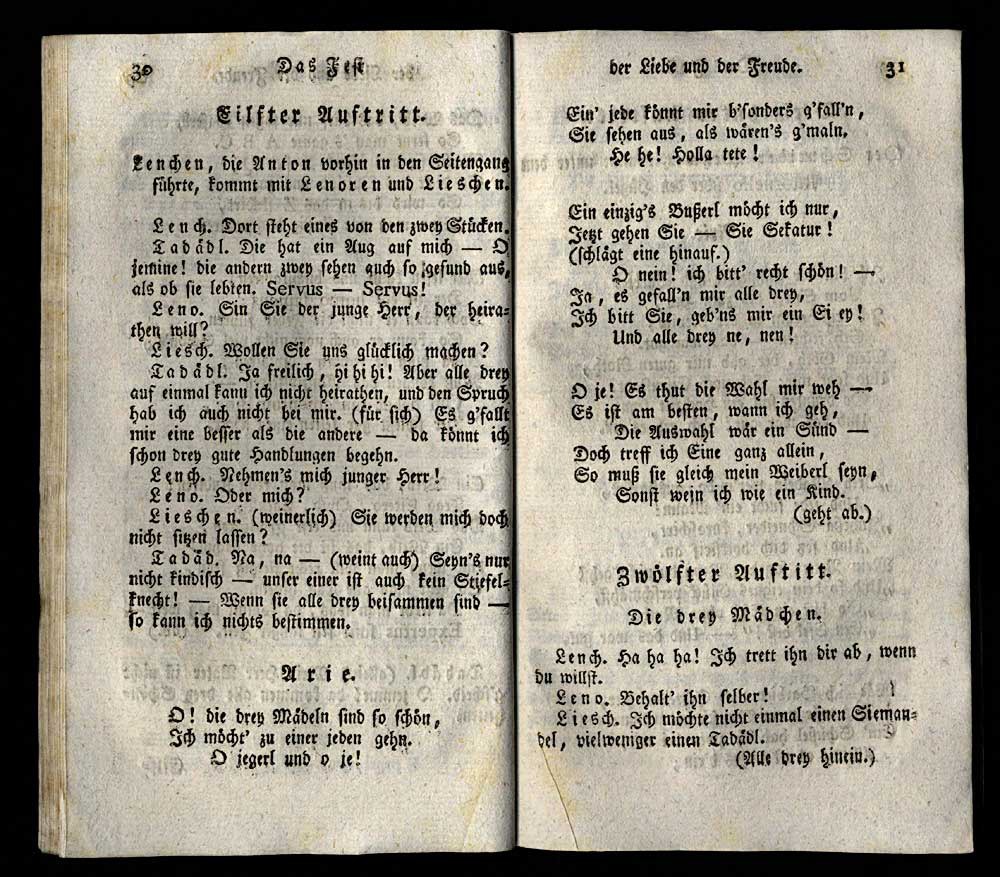 30 Das Fest
Eilfter Auftritt.
Lenchen, die Anton vorhin in den Seitengang
führte, kommt mit Lenoren und Lieschen.
Lench. Dort steht eines von den zwey Stücken.
Tadädl. Die hat ein Aug auf mich — O
jemine! die andern zwey sehen auch so gesund aus,
als ob sie lebten. Servus — Servus!
Leno. Sin Sie der junge Herr, der heira-
then will?
Liesch. Wollen Sie uns glücklich machen?
Tadädl. Ja freilich, hi hi hi! Aber alle drey
auf einmal kann ich nicht heirathen, und den Spruch
hab ich auch nicht bei mir. (für sich) Es g'fallt
mir eine besser als die andere — da könnt ich
schon drey gute Handlungen begehn.
Lench. Nehmen's mich junger Herr!
Leno. Oder mich?
Lieschen. (weinerlich) Sie werden mich doch
nicht sitzen lassen?
Tadäd. Na, na — (weint auch) Seyn's nur
nicht kindisch — unser einer ist auch kein Stiefel-
knecht! — Wenn sie alle drey beisammen sind —
so kann ich nichts bestimmen.
Arie.
O! die drey Mädeln sind so schön,
Ich möcht' zu einer jeden gehn.
O jegerl und o je!
der Liebe und der Freude. 31
Ein' jede könnt mir b'sonders g'fall'n,
Sie sehen aus, als wären's g'maln.
He he! Holla tete!
Ein einzig's Bußerl möcht ich nur,
Jetzt gehen Sie — Sie Sekatur!
(schlägt eine hinauf.)
O nein! ich bitt' recht schön! —
Ja, es gefall'n mir alle drey,
Ich bitt Sie, geb'ns mir ein Ei ey!
Und alle drey ne, nen!
O je! Es thut die Wahl mir weh —
Es ist am besten, wann ich geh,
Die Auswahl wär ein Sünd —
Doch treff ich Eine ganz allein,
So muß sie gleich mein Weiberl seyn,
Sonst wein ich wie ein Kind.
(geht ab.)
Zwölfter Auftitt.
Die drey Mädchen.
Lench. Ha ha ha! Ich trett ihn dir ab, wenn
du willst.
Leno. Behalt' ihn selber!
Liesch. Ich möchte nicht einmal einen Sieman-
del, vielweniger einen Tadädl.
(Alle drey hinein.)